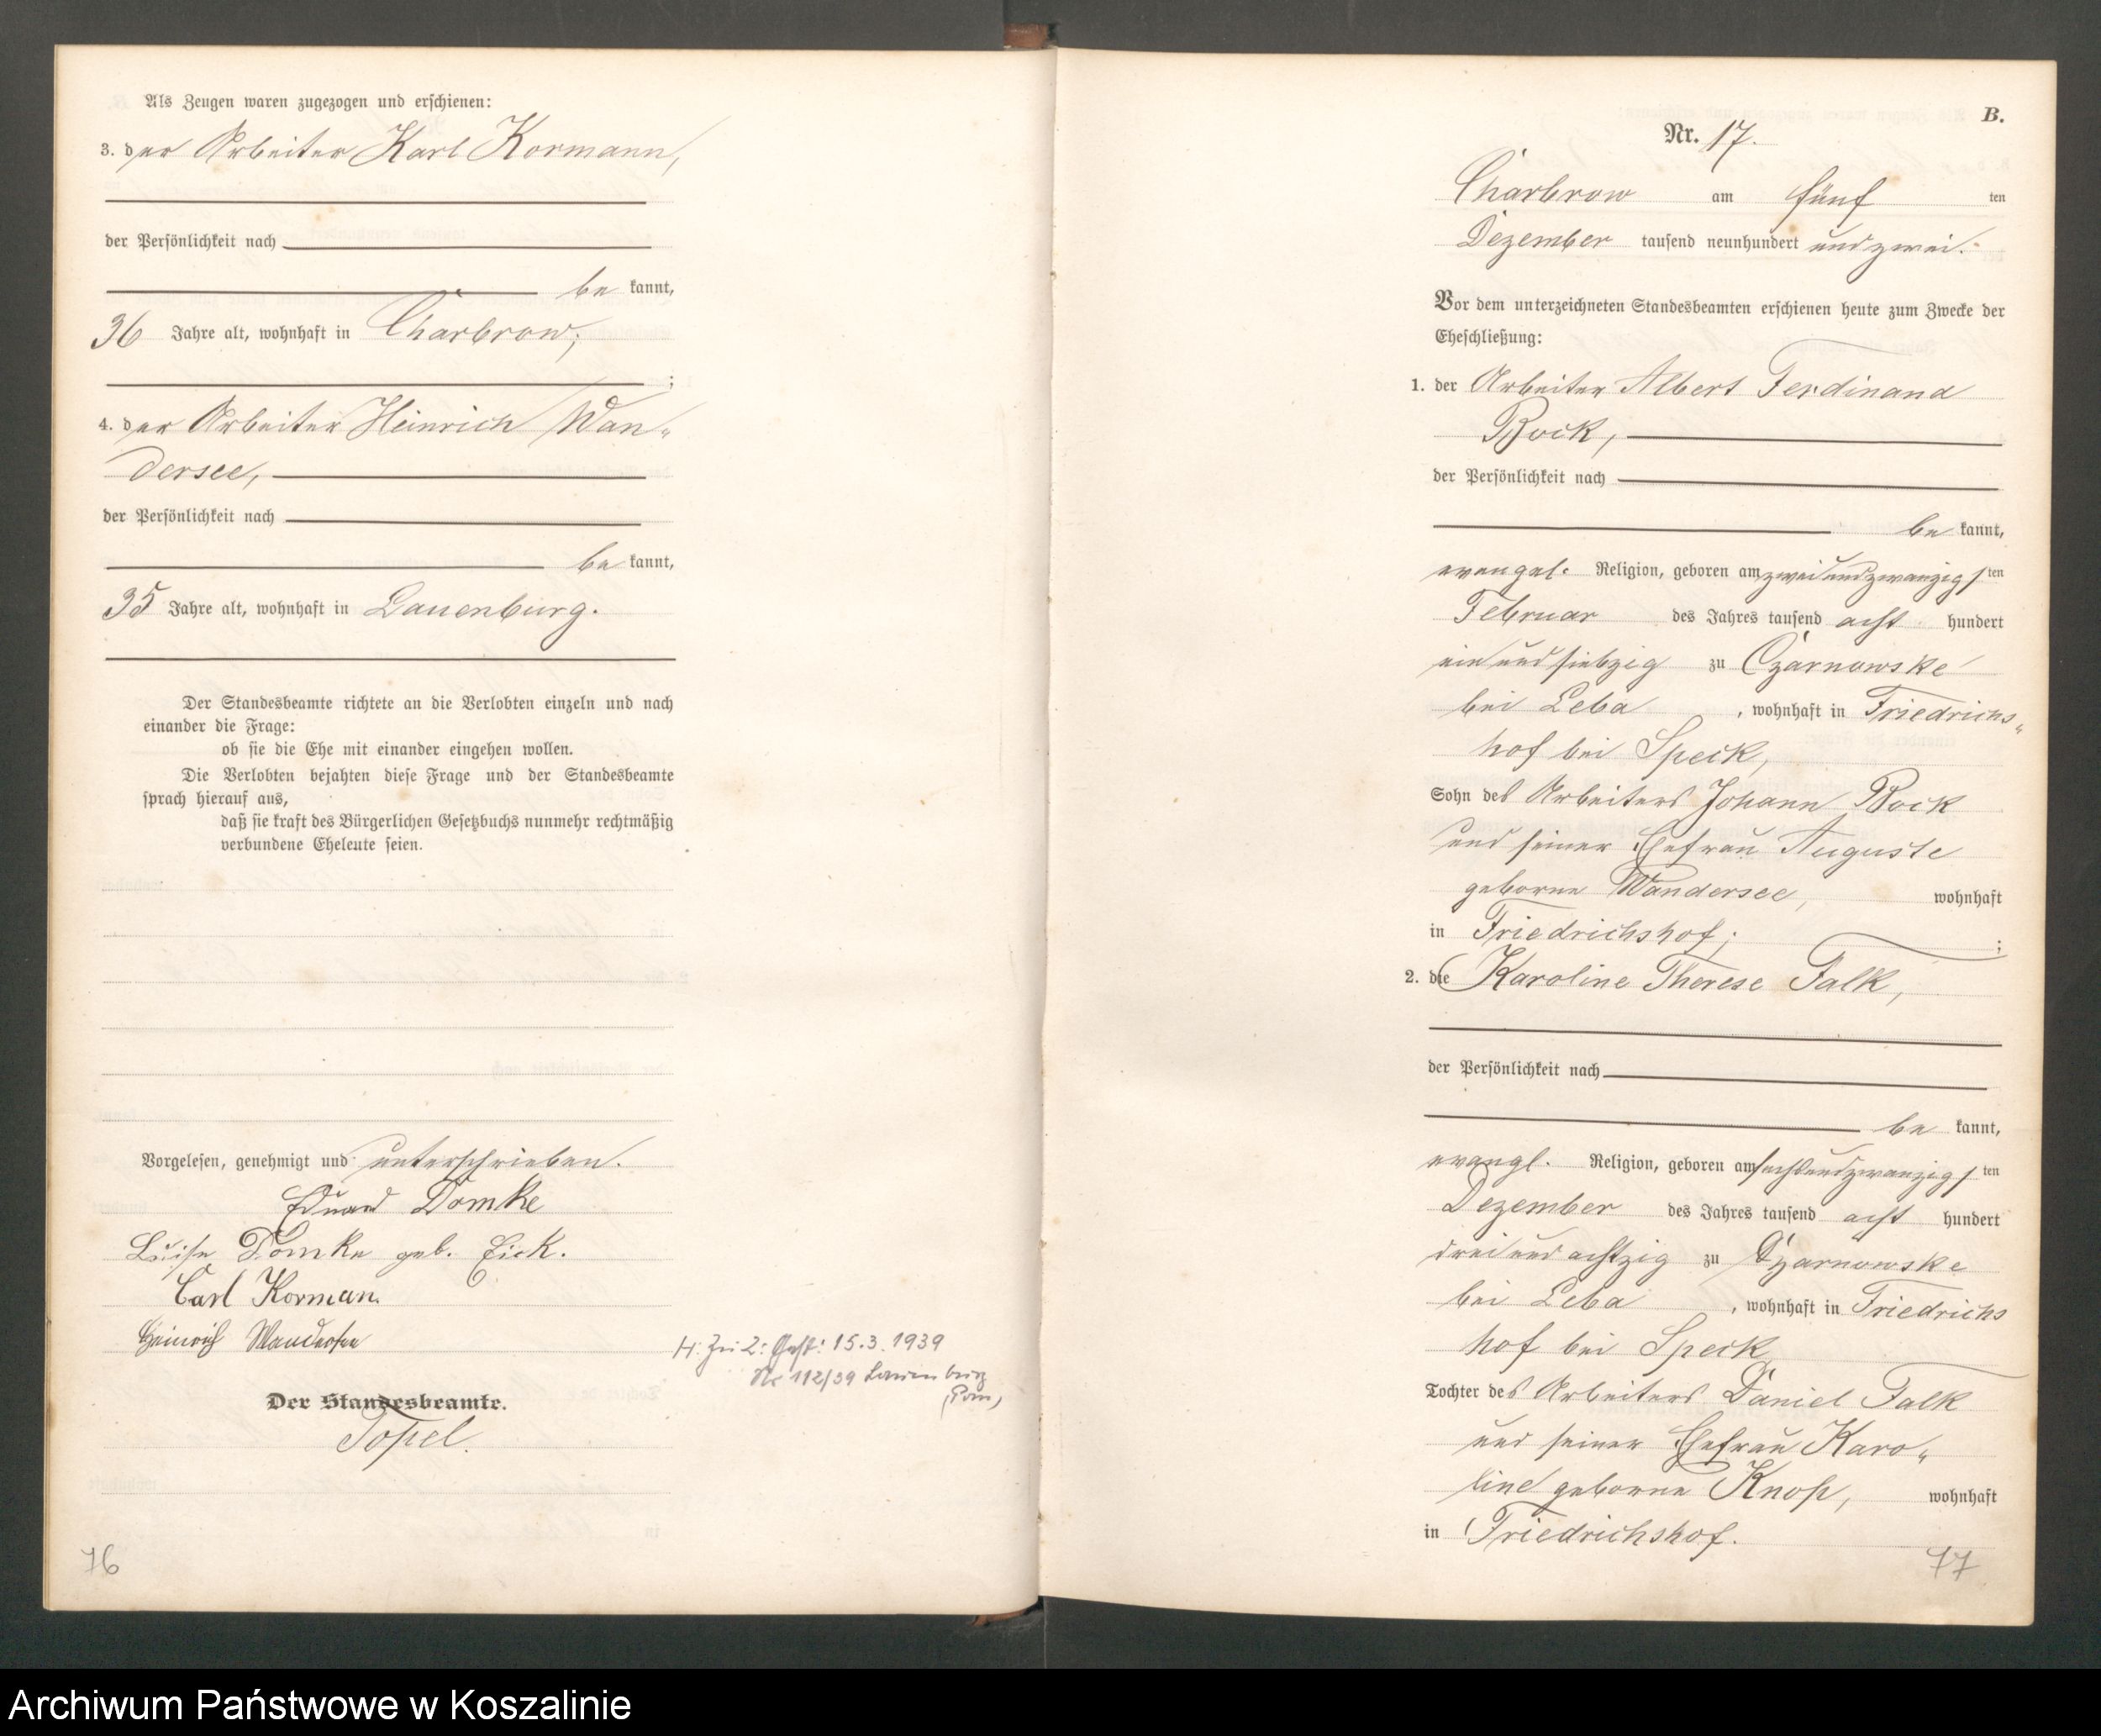 Als Zeugen waren zugezogen und erschienen:
3. der Arbeiter Karl Kormann,
der Persönlichkeit nach
be kannt,
36 Jahre alt, wohnhaft in Charbrow,
;
4. der Arbeiter Heinrich Wan-
dersee,
der Persönlichkeit nach
be kannt,
35 Jahre alt, wohnhaft in Lauenburg.
Der Standesbeamte richtete an die Verlobten einzeln und nach
einander die Frage:
ob sie die Ehe mit einander eingehen wollen.
Die Verlobten bejahten diese Frage und der Standesbeamte
sprach hierauf aus,
daß sie kraft des Bürgerlichen Gesetzbuchs nunmehr rechtmäßig
verbundene Eheleute seien.
Vorgelesen, genehmigt und unterschrieben.
Eduard Domke
Luise Domke geb. Eick.
Carl Korman
Heinrich Wandersee
H: Zu 2: Gest: 15.3.1939
Nr 112/39 Lauenburg
(Pom)
Der Standesbeamte.
Topel.
76
B.
Nr. 17.
Charbrow am fünf ten
Dezember tausend neunhundert und zwei.
Vor dem unterzeichneten Standesbeamten erschienen heute zum Zwecke der
Eheschließung:
1. der Arbeiter Albert Ferdinand
Bock,
der Persönlichkeit nach
be kannt,
evangel. Religion, geboren am zweiundzwanzigsten
Februar des Jahres tausend acht hundert
einundsiebzig zu Czarnowske
bei Leba, wohnhaft in Friedrichs-
hof bei Speck,
Sohn des Arbeiters Johann Bock
und seiner Ehefrau Auguste
geborne Wandersee, wohnhaft
in Friedrichshof; ;
2. die Karoline Therese Falk,
der Persönlichkeit nach
be kannt,
evangl. Religion, geboren am sechsundzwanzigsten
Dezember des Jahres tausend acht hundert
dreiundachtzig zu Czarnowske
bei Leba, wohnhaft in Friedrichs
hof bei Speck
Tochter des Arbeiters Daniel Falk
und seiner Ehefrau Karo-
line geborne Knop, wohnhaft
in Friedrichshof.
77
Archiwum Państwowe w Koszalinie